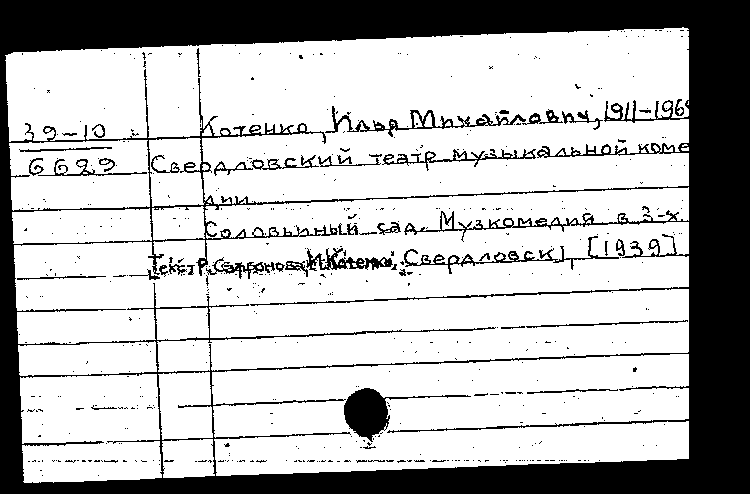 39-10 Котенко, Илья Михайлович, 1911-196
6629 Свердловский театр музыкальной коме
дии.
Соловьиный сад. Музкомедия в 3-х
Текст Р. И. Котенко. Свердловск, [1939]